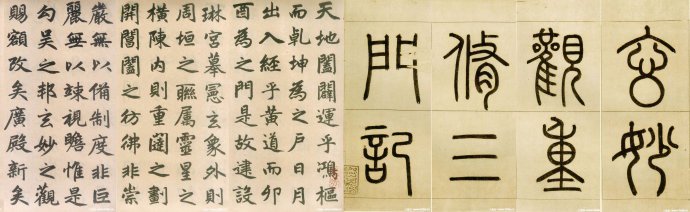 玄妙
觀重
脩三
門記
天地闔闢運乎鴻樞
而乾坤為之戶日月
出入經乎黃道而卯
酉為之門是故建設
琳宮摹憲玄象外則
周垣之聯属靈星之
橫陳內則重闥之劃
開閶闔之彷彿非崇
嚴無以備制度非巨
麗無以竦視瞻惟是
勾吳之邦玄妙之觀
賜額改矣廣殿新矣